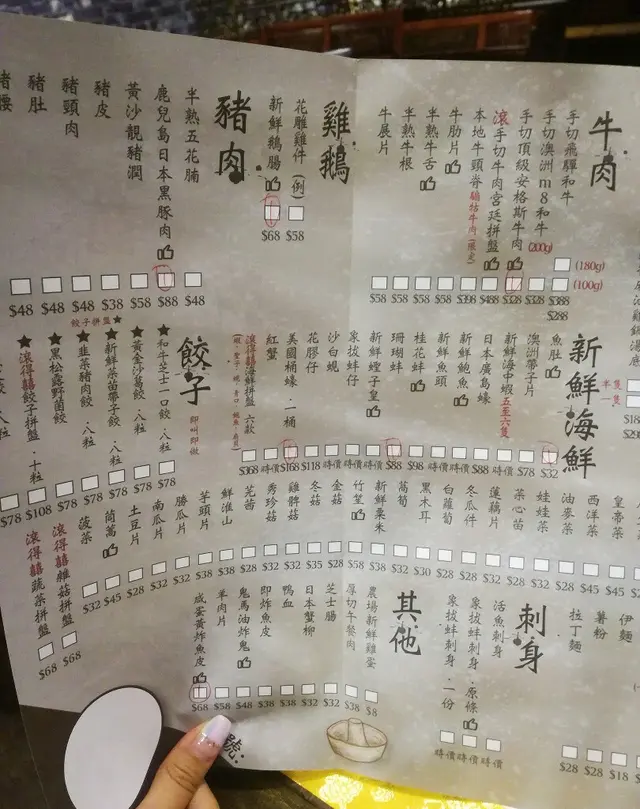 牛肉
手切飛驒和牛
(180g)
(100g)
$388
$288
手切澳洲m8和牛 (200g)
$328
手切頂級安格斯牛肉
$328
滾手切牛肉宮廷拼盤
$488
本地牛頸脊
$398
牛肋片
$58
半熟牛舌
$58
半熟牛根
$58
牛展片
$58
雞鵝
花雕雞件 (例)
$58
新鮮鵝腸
$68
豬肉
半熟五花腩
$48
鹿兒島日本黑豚肉
$88
黃沙靚豬潤
$58
豬皮
$38
豬頸肉
$48
豬肚
$48
豬腰
$48
新鮮海鮮
魚肚
$32
澳洲帶子片
$78
新鮮海中蝦 五至六隻
時價
日本廣島蠔
$88
新鮮鮑魚
時價
新鮮魚頭
時價
桂花蚌
$98
珊瑚蚌
$88
新鮮蟶子皇
時價
象拔蚌仔
時價
沙白蜆
時價
花膠仔
$118
美國桶蠔.一桶
$168
紅蟹
時價
滾得囍海鮮拼盤 六款
$368
餃子
即叫即做
餃子拼盤★
★和牛芝士一口餃.八粒
$78
★黃金沙葛餃.八粒
$78
★新鮮菜苗帶子餃.八粒
$78
★韭菜豬肉餃.八粒
$78
★黑松露野菌餃.八粒
$78
★滾得囍餃子拼盤.十粒
$108
$78
皇帝菜
西洋菜
$45
油麥菜
$45
娃娃菜
$28
菜心苗
$32
蓮藕片
$28
冬瓜件
$32
白蘿蔔
$28
黑木耳
$30
萵筍
$32
新鮮粟米
$38
竹笙
$58
金菇
$28
冬菇
$35
雞髀菇
$32
秀珍菇
$32
芫茜
$28
鮮淮山
$38
芋頭片
$38
勝瓜片
$32
南瓜片
$32
土豆片
$28
茼蒿
$45
菠菜
$32
滾得囍雜菇拼盤
$68
滾得囍蔬菜拼盤
$68
伊麵
$18
薯粉
$28
拉丁麵
$28
刺身
活魚刺身
時價
象拔蚌刺身.原條
時價
象拔蚌刺身.一份
時價
其他
農場新鮮雞蛋
$8
厚切午餐肉
$38
芝士腸
$32
日本蟹柳
$32
鴨血
$38
即炸魚皮
$38
鬼馬油炸鬼
$48
羊肉片
$58
咸蛋黃炸魚皮
$68
號: